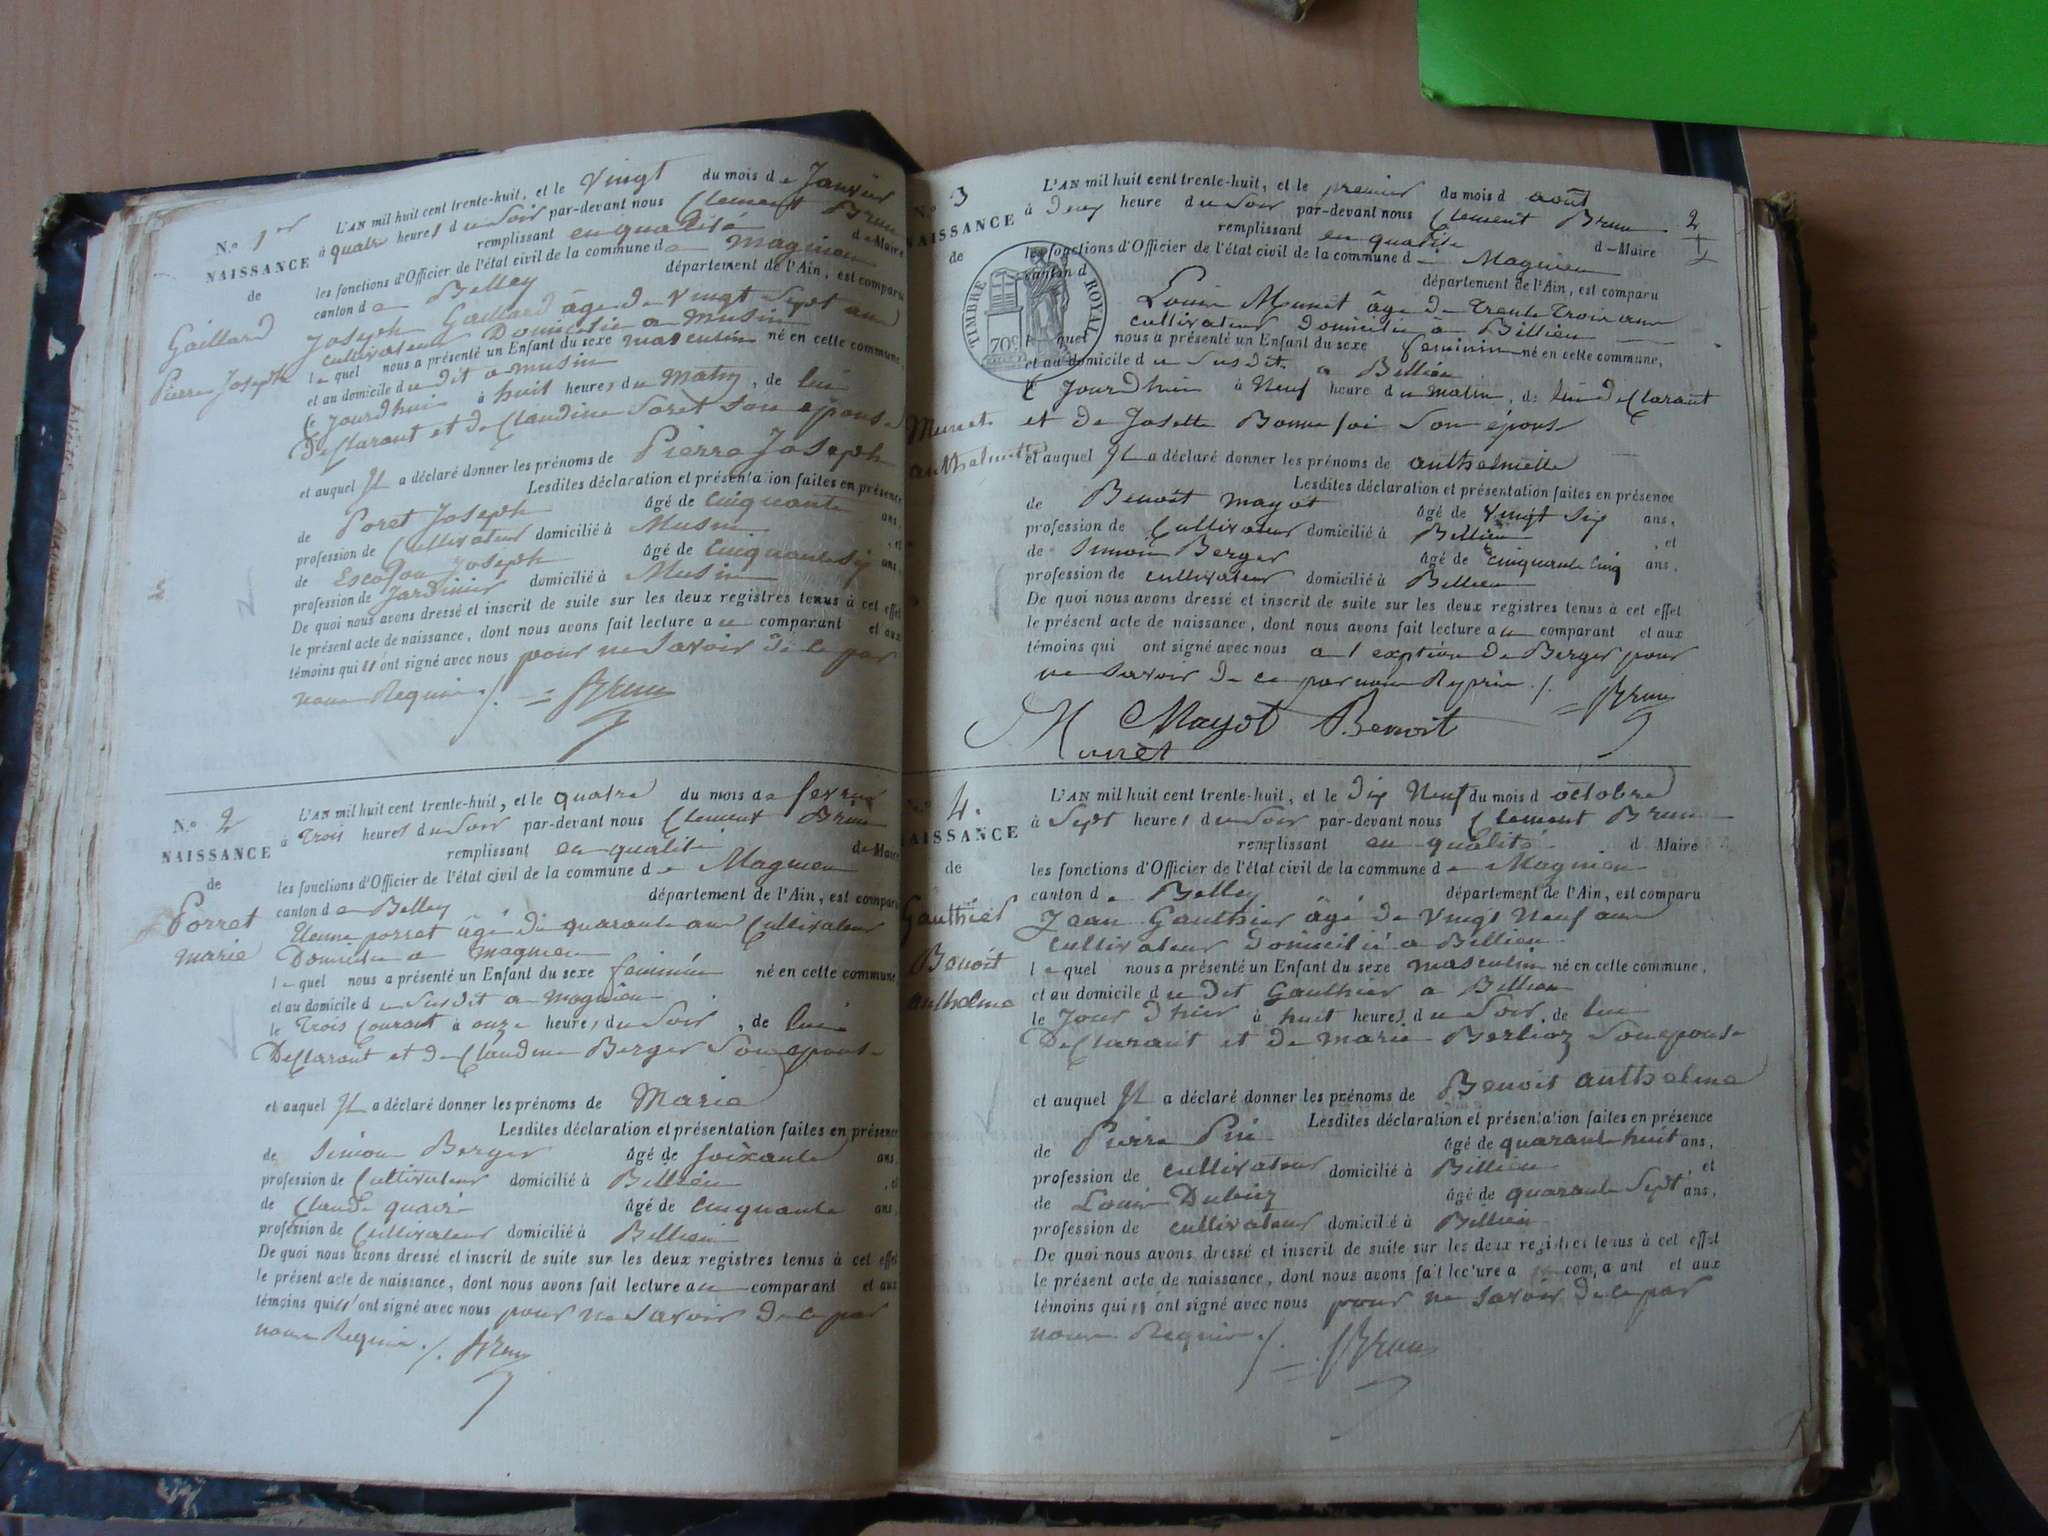 N.o 1er
NAISSANCE
de
Gaillard
Pierre Joseph
L'AN mil huit cent trente-huit, et le Vingt du mois de Janvier
à quatre heures du Soir par-devant nous Clement Brun
remplissant en qualité de Maire
les fonctions d'Officier de l'état civil de la commune de Magnieu
canton de Belley département de l'Ain, est comparu
Joseph Gaillard âgé de Vingt Sept ans
cultivateur Domicilié a Musin
lequel nous a présenté un Enfant du sexe masculin né en cette commune,
et au domicile du dit a musin
Ce Jourdhui à huit heures du Matin, de lui
Declarant et de Claudine Poret Son epouse
et auquel Il a déclaré donner les prénoms de Pierre Joseph
Lesdites déclaration et présentation faites en présence
de Poret Joseph âgé de Cinquante ans,
profession de Cultivateur domicilié à Musin , et
de Joseph âgé de Cinquante Six ans,
profession de Jardinier domicilié à Musin
De quoi nous avons dressé et inscrit de suite sur les deux registres tenus à cet effet
le présent acte de naissance, dont nous avons fait lecture au comparant et aux
témoins qui n'ont signé avec nous pour ne Savoir de ce par
nous Requis ./. Brun
N.o 2
NAISSANCE
de
Porret
marie
L'AN mil huit cent trente-huit, et le quatre du mois de fevrier
à Trois heures du Soir par-devant nous Clement Brun
remplissant en qualité de Maire
les fonctions d'Officier de l'état civil de la commune de Magnieu
canton de Belley département de l'Ain, est comparu
porret âgé de quarante ans Cultivateur
Domicilié a magnieu
lequel nous a présenté un Enfant du sexe feminin né en cette commune
et au domicile du Susdit a magnieu
le Trois Courant à onze heures du Soir, de lui
Declarant et de Claudine Berger Son epouse
et auquel Il a déclaré donner les prénoms de Marie
Lesdites déclaration et présentation faites en présence
de Simon Berger âgé de Soixante ans,
profession de Cultivateur domicilié à Billieu , et
de Claude âgé de Cinquante ans,
profession de Cultivateur domicilié à Billieu
De quoi nous avons dressé et inscrit de suite sur les deux registres tenus à cet effet
le présent acte de naissance, dont nous avons fait lecture au comparant et aux
témoins qui n'ont signé avec nous pour ne Savoir de ce par
nous Requis ./. Brun
N.o 3
NAISSANCE
de
Munet
anthelmette
TIMBRE ROYAL
70c
L'AN mil huit cent trente-huit, et le premier du mois d août
à Deux heure du Soir par-devant nous Clement Brun
2
remplissant en qualité de Maire
les fonctions d'Officier de l'état civil de la commune de Magnieu
canton d département de l'Ain, est comparu
Louis Munet âgé de trente trois ans
cultivateur domicilié à Billieu
lequel nous a présenté un Enfant du sexe feminin né en cette commune,
et au domicile du Susdit a Billieu
Ce Jourdhui à Neuf heure du matin, de lui declarant
et de Josette Bonnefoi Son épouse
et auquel Il a déclaré donner les prénoms de anthelmette
Lesdites déclaration et présentation faites en présence
de Benoît mayot âgé de vingt six ans,
profession de Cultivateur domicilié à Billieu , et
de Simon Berger âgé de cinquante cinq ans,
profession de cultivateur domicilié à Billieu
De quoi nous avons dressé et inscrit de suite sur les deux registres tenus à cet effet
le présent acte de naissance, dont nous avons fait lecture au comparant et aux
témoins qui ont signé avec nous a l'exption de Berger pour
ne savoir de ce par nous ./. Brun
Mayot Benoit
Munet
N.o 4.
NAISSANCE
de
Gauthier
Benoit
anthelme
L'AN mil huit cent trente-huit, et le dix Neuf du mois d octobre
à Sept heures du Soir par-devant nous Clement Brun
remplissant en qualité d Maire
les fonctions d'Officier de l'état civil de la commune de Magnieu
canton de Belley département de l'Ain, est comparu
Jean Gauthier âgé de Vingt Neuf ans
Cultivateur domicilié a Billieu
lequel nous a présenté un Enfant du sexe masculin né en cette commune,
et au domicile du dit Gauthier a Billieu
le Jour D'hier à huit heures du Soir, de lui
Declarant et de marie Berlioz Son epouse
et auquel Il a déclaré donner les prénoms de Benoit anthelme
Lesdites déclaration et présentation faites en présence
de Pierre âgé de quarante huit ans,
profession de cultivateur domicilié à Billieu , et
de Louis âgé de quarante Sept ans,
profession de cultivateur domicilié à Billieu
De quoi nous avons dressé et inscrit de suite sur les deux registres tenus à cet effet
le présent acte de naissance, dont nous avons fait lecture a comparant et aux
témoins qui n'ont signé avec nous pour ne savoir de ce par
nous Requis ./. Brun